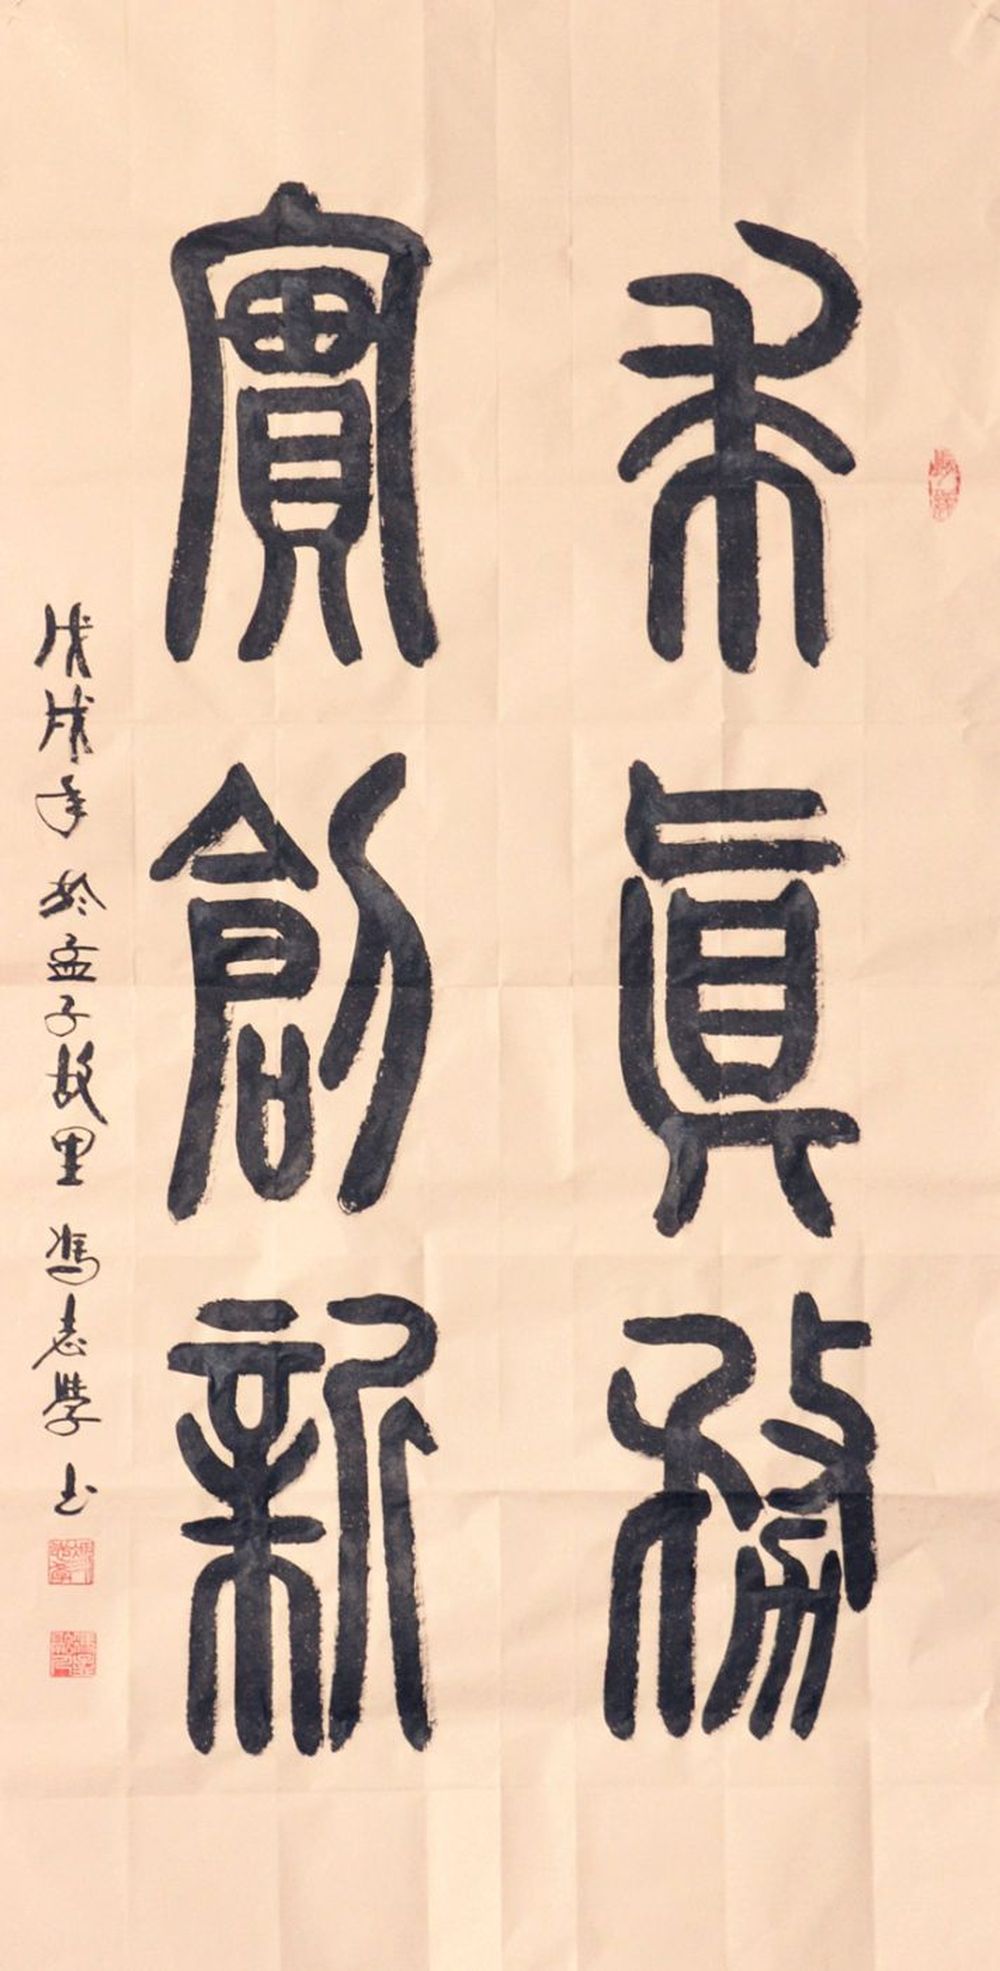 求真務
實創新
戊戌年於孟子故里馮志學書